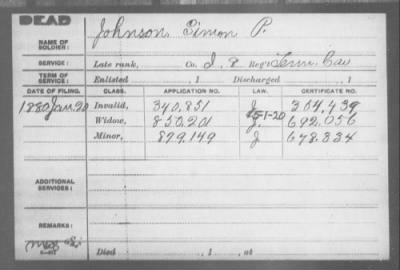 DEAD
NAME OF SOLDIER: Johnson, Simon P.
SERVICE: Late rank, Co. I, 8 Reg't Tenn. Cav
TERM OF SERVICE: Enlisted , 1 Discharged , 1
DATE OF FILING. CLASS. APPLICATION NO. LAW. CERTIFICATE NO.
1880 Jan. 20 Invalid, 340.851 304.439
5-1-20
Widow, 850.201 692.056
Minor, 899.149 678.834
ADDITIONAL SERVICES:
REMARKS:
Died , 1 , at